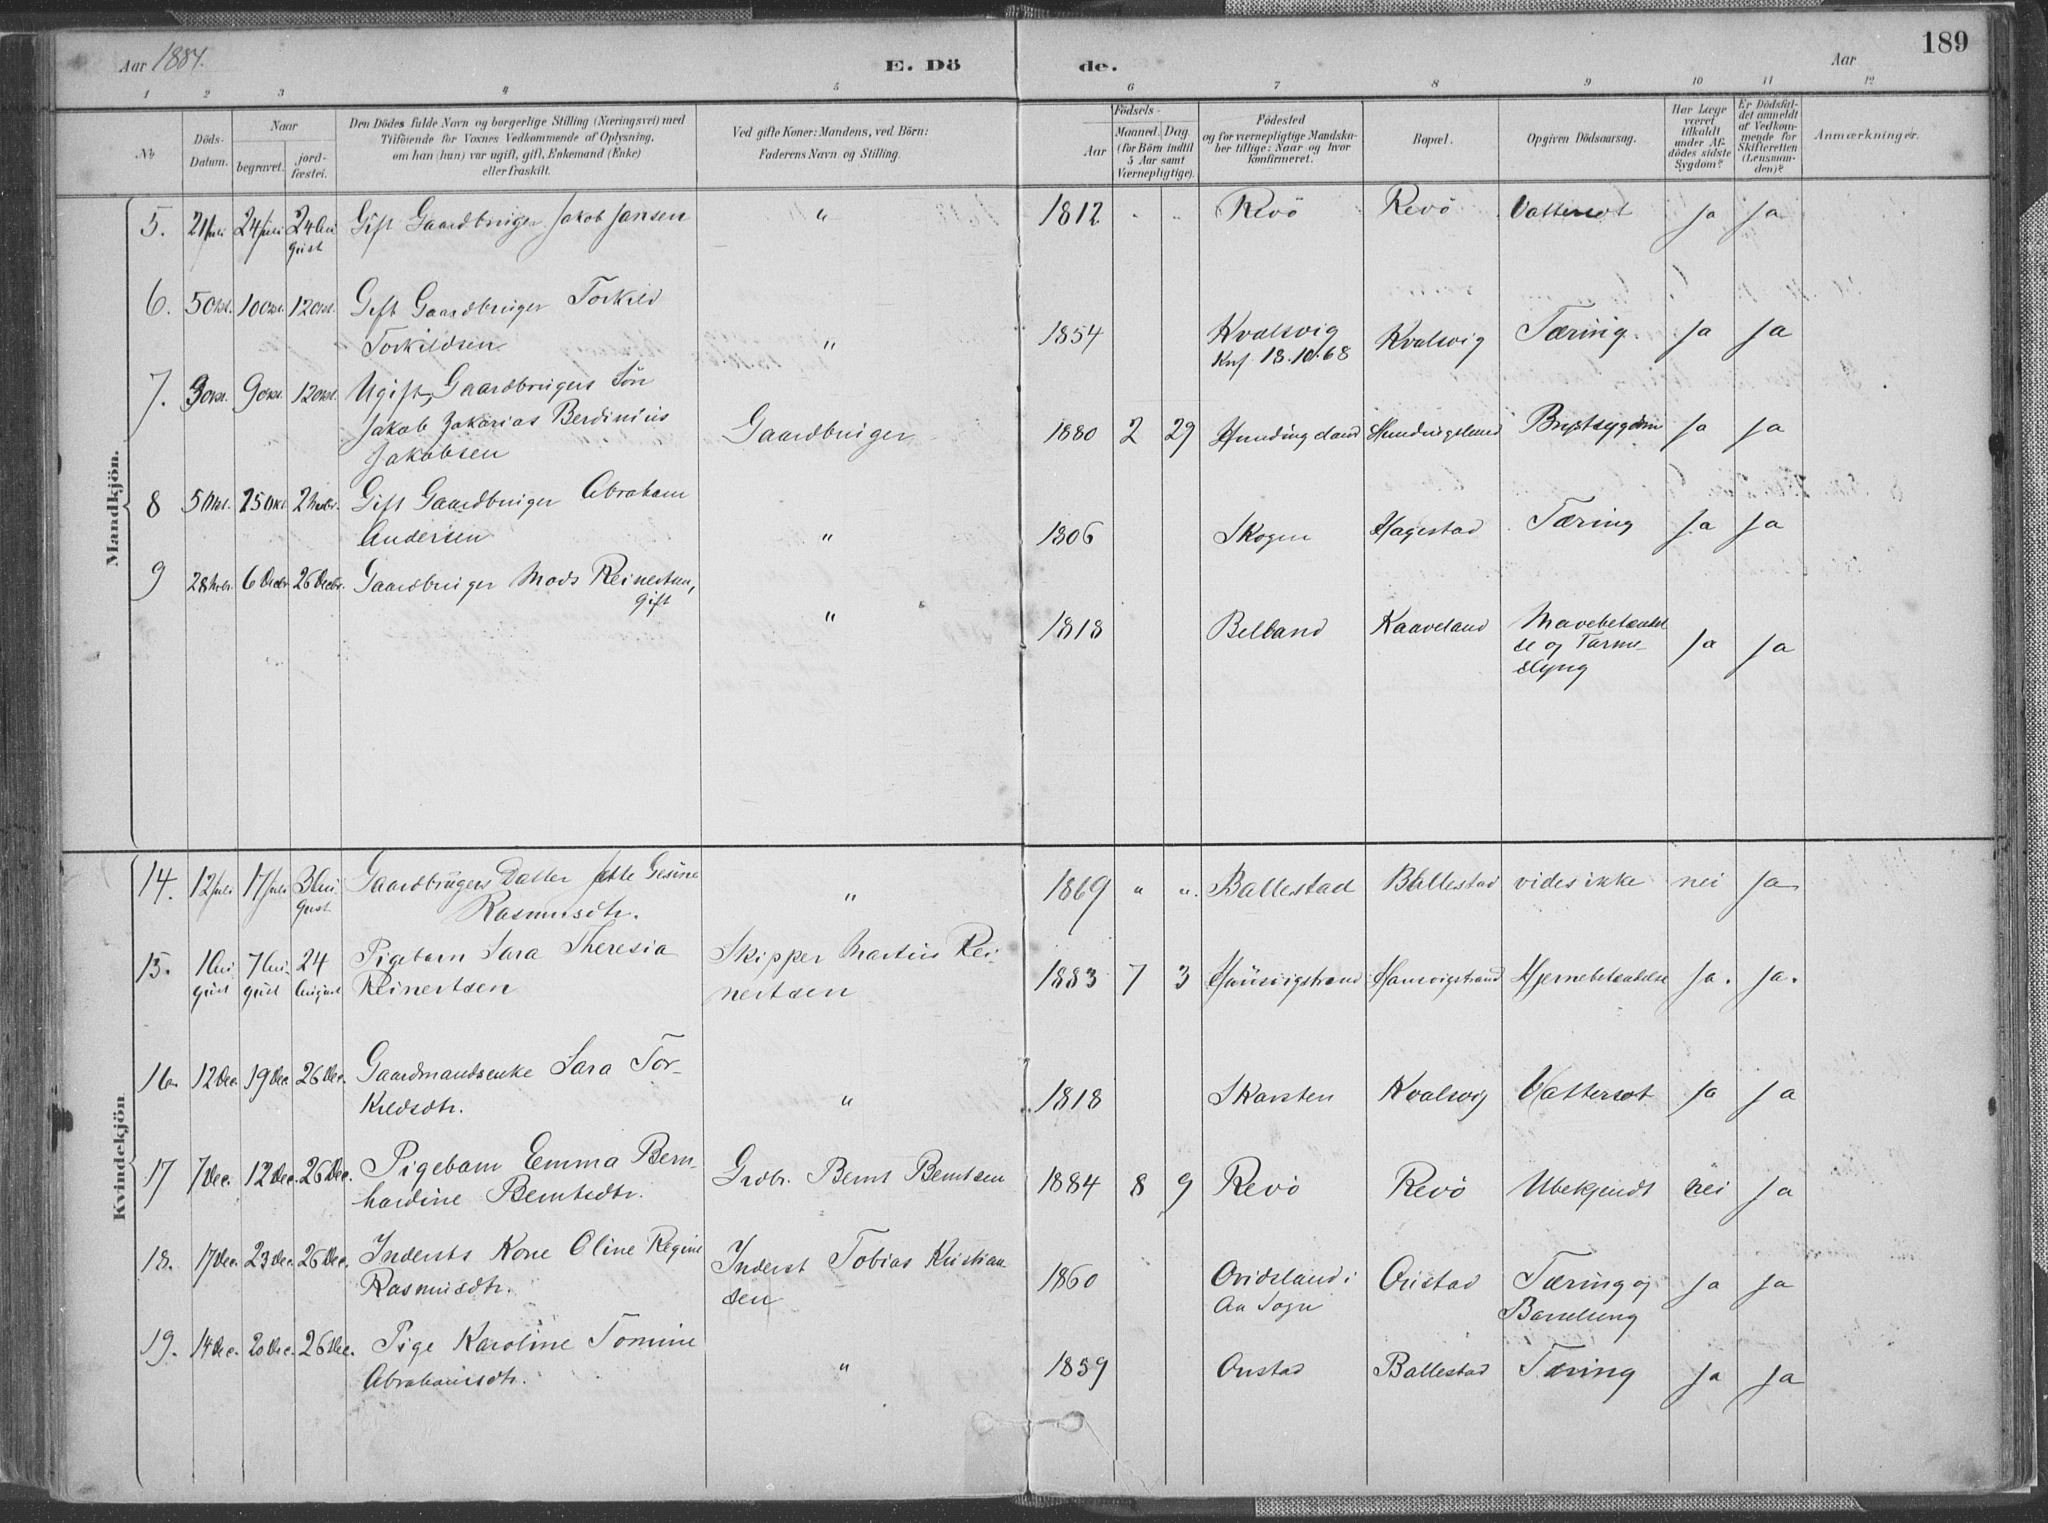 Aar 1884.
E. Dö
de.
Aar
189
1 2 3 4 5 6 7 8 9 10 11 12
No
Döds-Datum.
Naar
begravet.
jord-fæstet.
Den Dödes fulde Navn og borgerlige Stilling (Næringsvei) med
Tilföiende for Voxnes Vedkommende af Oplysning,
om han (hun) var ugift, gift, Enkemand (Enke)
eller fraskilt.
Ved gifte Koner: Mandens, ved Börn:
Faderens Navn og Stilling.
Födsels-
Aar
Maaned. Dag
(for Börn indtil
5 Aar samt
Værnepligtige).
Födested
og for værnepligtige Mandska-
ber tillige: Naar og hvor
konfirmeret.
Bopæl.
Opgiven Dödsaarsag.
Har Læge
været
tilkaldt
under Af-
dödes sidste
Sygdom?
Er Dödsfal-
det anmeldt
af Vedkom-
mende for
Skifteretten
(Lensman-
den)?
Anmærkninger.
Mandkjön.
5. 21 Juli 24 Juli 24 Au gust Gift Gaardbruger Jakob Jansen " 1812 " " Revö Revö Vattersot Ja Ja
6. 5 Okt. 10 Okt. 12 Okt. Gift Gaardbruger Torkild
Torkildsen " 1854 Kvalsvig Kvalsvig Tæring. Ja Ja
Knf. 18.10.68
7. 3 Okt. 9 Okt. 12 Okt. Ugift, Gaardbrugers Sön
Jakob Zakarias Berdinius
Jakobsen Gaardbruger 1880 2 29 Hundingsland Hundingsland Brystsygdom Ja Ja
8 5 Okt. 25 Okt. 2 Novbr. Gift Gaardbruger Abraham
Andersen " 1806 Skogen Hagestad Tæring Ja Ja
9 28 Novbr. 6 Decbr. 26 Decbr. Gaardbruger Mads Reinertsen,
gift " 1818 Belland Kaaveland Mavebetændel
se og Tarme-
slyng Ja Ja
Kvindekjön
14. 12 Juli 17 Juli 3 Au gust Gaardbrugers Datter Jette Gesine
Rasmusdtr. " 1869 " " Ballestad Ballestad vides ikke nei Ja
15. 1 Au gust 7 Au- gust 24 August Pigebarn Sara Theresia
Reinertsen Skipper Martius Rei-
nertsen 1883 7 3 Hausvigstrand Hausvigstrand Hjernebetændelse Ja. Ja.
16. 12 Dec. 19 Dec. 26 Dec. Gaardmandsenke Sara Tor-
kildsdtr. " 1818 Skarsten Kvalsvig Vattersot Ja Ja
17 7 Dec. 12 Dec. 26 Dec. Pigebarn Emma Bern-
hardine Berntsdtr. Grdbr. Bernt Berntsen 1884 8 9 Revö Revö Ubekjendt nei Ja
18. 17 Dec. 23 Dec. 26 Dec. Inderts Kone Oline Regine
Rasmusdtr. Inderst Tobias Kristian
sen 1860 Ovidsland i
Aa Sogn Oustad Tæring og
Barselseng Ja Ja
19. 14 Dec. 20 Dec. 26 Dec. Pige Karoline Tomine
Abrahamsdtr. " 1859 Oustad Ballestad Tæring Ja Ja